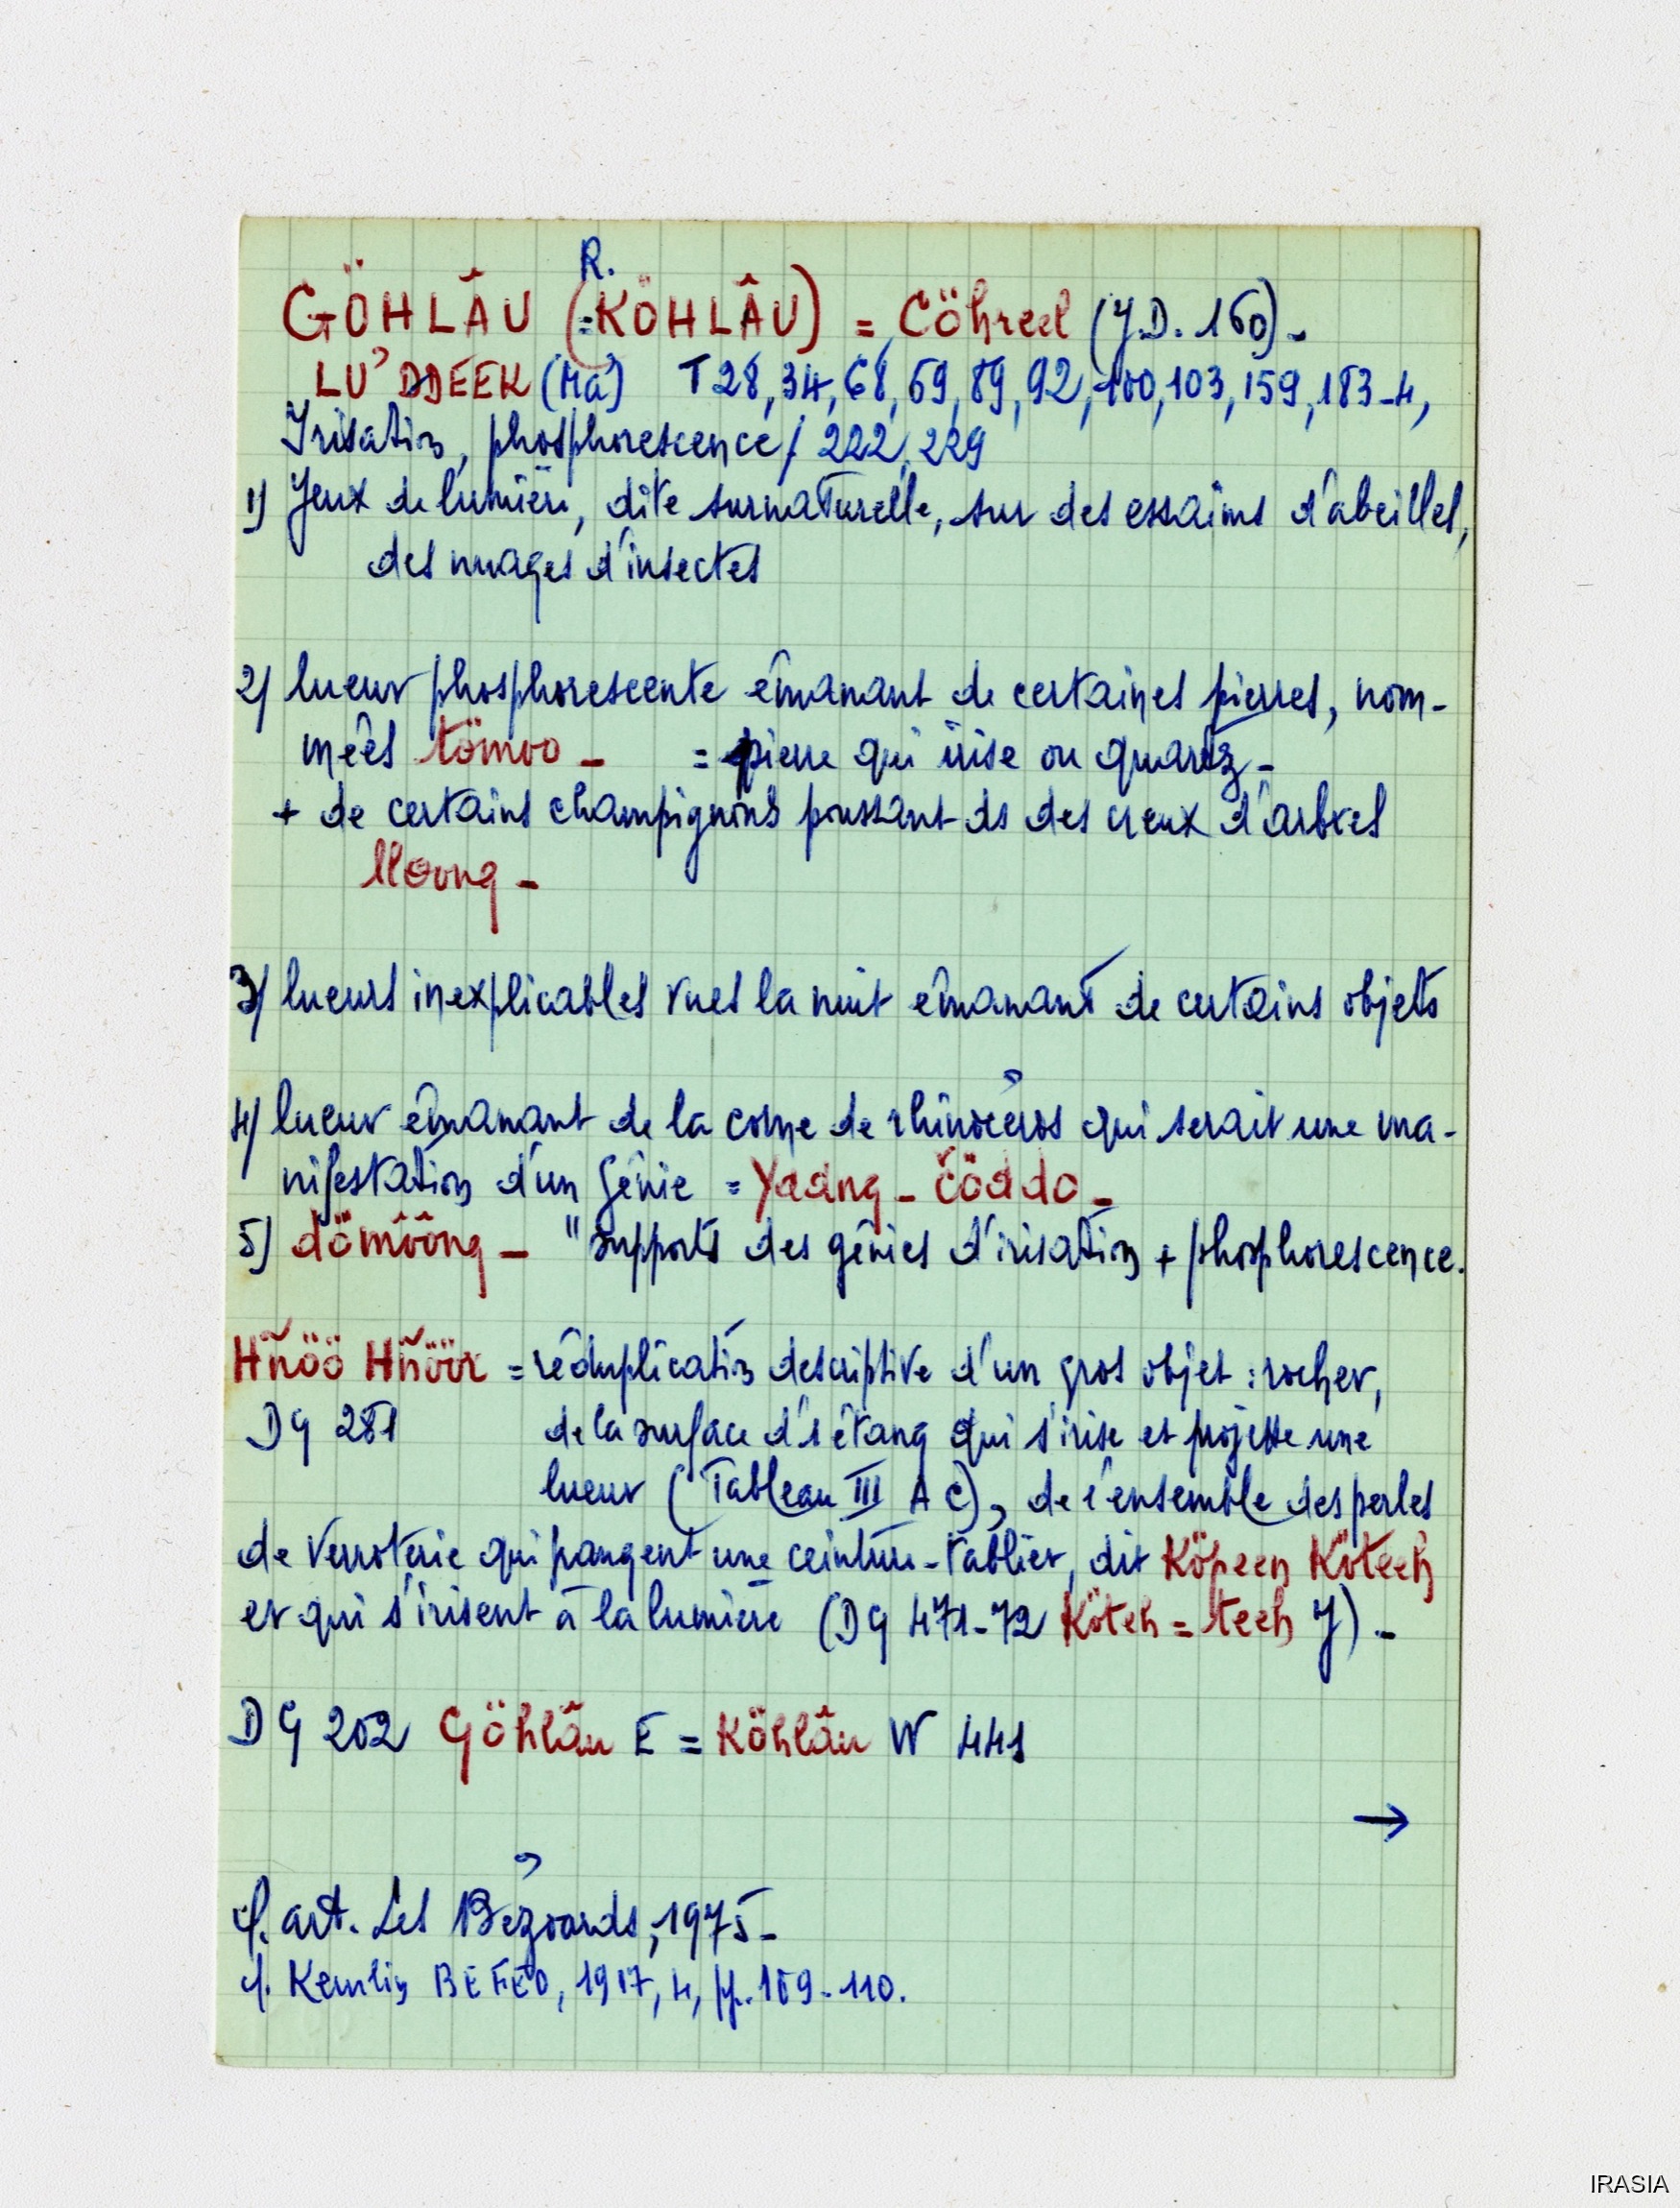 R.
GÖHLÂU (=KÖHLÂU) = Cöhreel (J.D. 160)-
LU' DDEEK (Ma) T 28, 34, 68, 69, 89, 92, 100, 103, 159, 183-4,
Irisation, phosphorescence / 222, 229
1) Jeux de lumière, dite surnaturelle, sur des essaims d'abeilles,
des nuages d'insectes
2) lueur phosphorescente émanant de certaines pierres, nom-
mées tömoo - = pierre qui irise ou quartz-
+ de certains champignons poussant ds des creux d'arbres
-
3) lueurs inexplicables vues la nuit émanant de certains objets
4) lueur émanant de la corne de rhinocéros qui serait une ma-
nifestation d'un génie = Yaang -
5) dömôông - "supports des génies d'irisation + phosphorescence.
Hñöö Hñöör = réduplication descriptive d'un gros objet : rocher,
DG 281 de la surface d's étang qui s'irise et projette une
lueur (Tableau III A C), de l'ensemble des perles
de verroterie qui frangent une ceinture-tablier, dit Köpeen Köteeh
et qui s'irisent à la lumière (DG 471-72 Köteh = teeh J)-
DG 202 Göhlâu E = Köhlâu W 441
→
cf. art. Les Bézoards, 1975-
cf. Kemlin BEFEO, 1917, 4, p. 109-110.
IRASIA